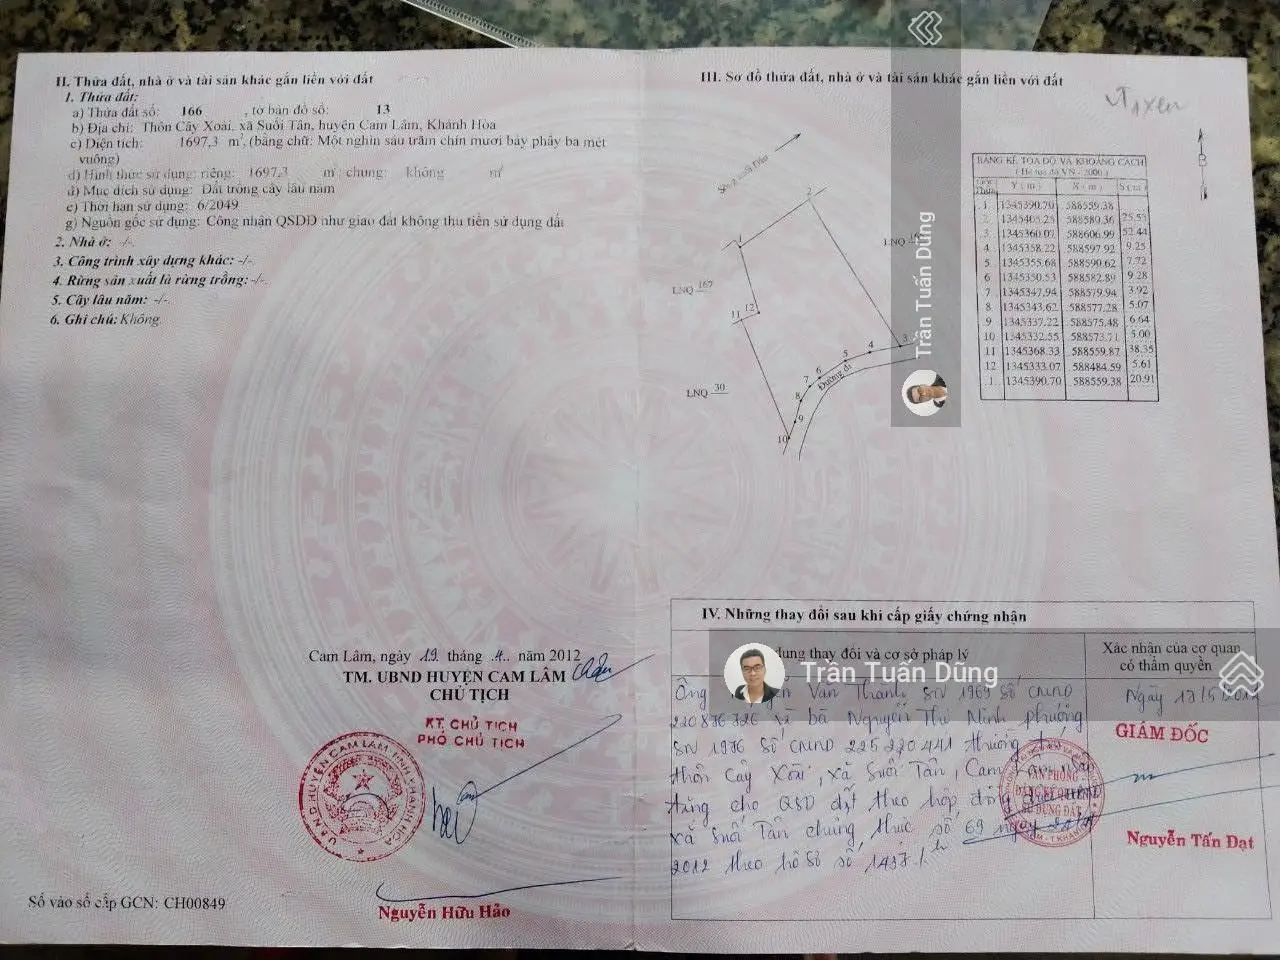 II. Thửa đất, nhà ở và tài sản khác gắn liền với đất
1. Thửa đất:
a) Thửa đất số: 166 , tờ bản đồ số: 13
b) Địa chỉ: Thôn Cây Xoài, xã Suối Tân, huyện Cam Lâm, Khánh Hòa
c) Diện tích: 1697,3 m², (bằng chữ: Một nghìn sáu trăm chín mươi bảy phẩy ba mét
vuông)
d) Hình thức sử dụng: riêng: 1697,3 m²; chung: không m²
đ) Mục đích sử dụng: Đất trồng cây lâu năm
e) Thời hạn sử dụng: 6/2049
g) Nguồn gốc sử dụng: Công nhận QSDĐ như giao đất không thu tiền sử dụng đất
2. Nhà ở: -/-.
3. Công trình xây dựng khác: -/-.
4. Rừng sản xuất là rừng trồng: -/-.
5. Cây lâu năm: -/-.
6. Ghi chú: Không.
Cam Lâm, ngày 19 tháng .4.. năm 2012
TM. UBND HUYỆN CAM LÂM
CHỦ TỊCH
KT. CHỦ TỊCH
PHÓ CHỦ TỊCH
Nguyễn Hữu Hảo
Số vào sổ cấp GCN: CH00849
III. Sơ đồ thửa đất, nhà ở và tài sản khác gắn liền với đất
B
LNQ
LNQ 167
LNQ 30
Đường đi
1
2
3
4
5
6
7
8
9
10
11
12
BẢNG KÊ TỌA ĐỘ VÀ KHOẢNG CÁCH
( Hệ tọa độ VN - 2000 )
Y ( m ) X ( m ) S ( m )
1 1345390.70 588559.38
2 1345405.25 588589.36 25.53
3 1345360.07 588606.99 52.44
4 1345358.22 588597.92 9.25
5 1345355.68 588590.62 7.72
6 1345350.53 588582.89 9.28
7 1345347.94 588579.94 3.92
8 1345343.62 588577.28 5.07
9 1345337.22 588575.48 6.64
10 1345332.55 588573.71 5.00
11 1345368.33 588559.87 38.35
12 1345333.07 588484.59 5.61
1 1345390.70 588559.38 20.91
Trần Tuấn Dũng
IV. Những thay đổi sau khi cấp giấy chứng nhận
dung thay đổi và cơ sở pháp lý
Xác nhận của cơ quan
có thẩm quyền
Trần Tuấn Dũng
Ông Văn Thanh SN 1969 số CMND
220876726 và bà Nguyễn Thị Ninh phường
SN 1976 số CMND 225220441 thường
thôn Cây Xoài, xã Suối Tân, Cam
tặng cho QSD đất theo hợp đồng
xã Suối Tân chứng thực số 69 ngày
2012 theo hồ sơ số 1437
Ngày 17/5/
GIÁM ĐỐC
Nguyễn Tấn Đạt